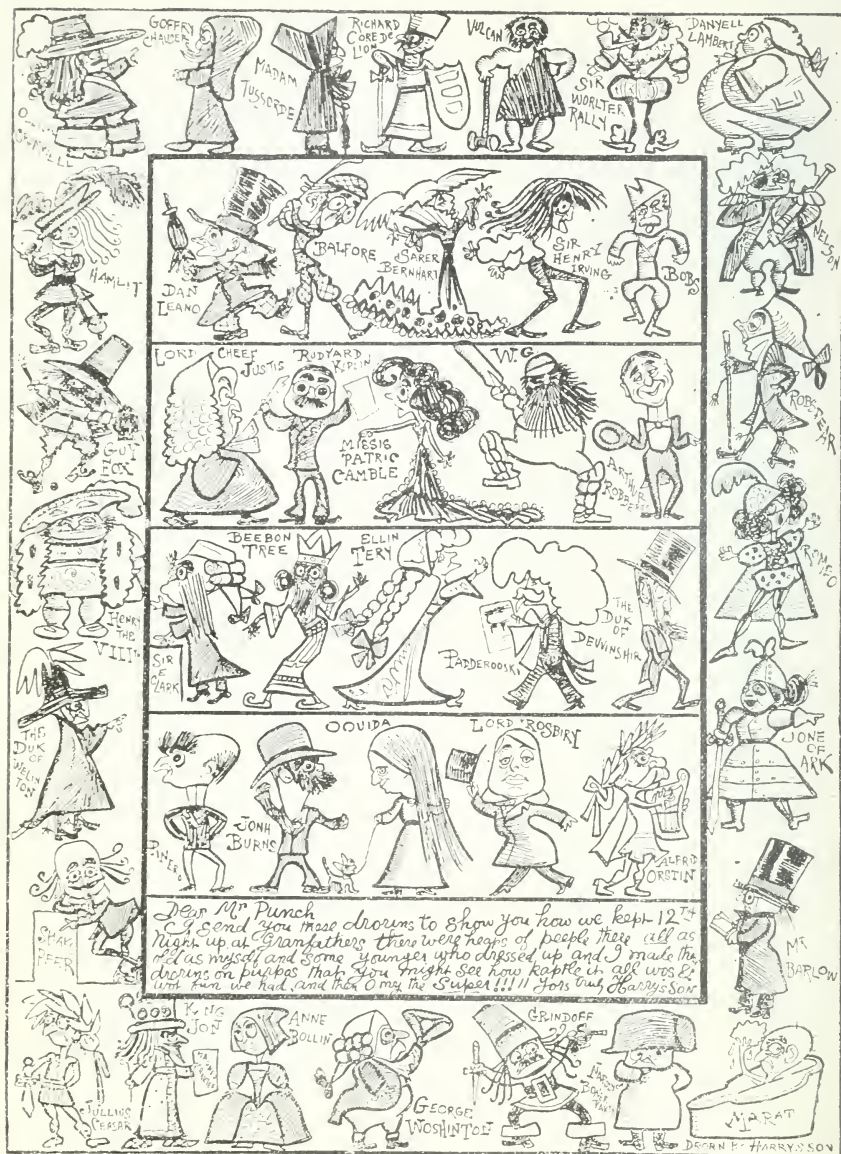 GOFFRY
CHAUSER
MADAM
TUSSORDE
RICHARD
CORE DE
LION
VULCAN
SIR
WORLTER
RALLY
DANYELL
LAMBERT
HAMLIT
GUY
FOX
HENRY
THE
VIIITH
THE
DUK
OF
WELIN
TON
SHAK
PEER
DAN
LEANO
BALFORE
SARER
BERNHART
SIR
HENRY
IRVING
BOBS
LORD CHEEF
JUSTIS
RUDYARD
KIPLIN
MISSIS
PATRIC
CAMBLE
W.G
ARTHUR
BEEBON
TREE
SIR
E
CLARK
ELLIN
TERY
PADDEROOSKI
THE
DUK
OF
DEUVINSHIR
JONH
BURNS
OOUIDA
LORD ROSBIRY
ALFRID
ORSTIN
Dear Mr Punch
I send you these drorins to show you how we kept 12TH
Night up at Granfathers there were heaps of peeple there all as
old as myself and some younger who dressed up and I made the
drorins on purpas that you might see how kaptle it all wos &
wot fun we had, and then O my the Super!!!!! Yors truly Harrysson
NELSON
ROBSPEAR
ROMEO
JONE
OF
ARK
MR
BARLOW
JULLIUS
CEASAR
KING
JON
ANNE
BOLLIN
GEORGE
WOSHINTON
GRINDOFF
MARAT
DRORN BY HARRYSSON